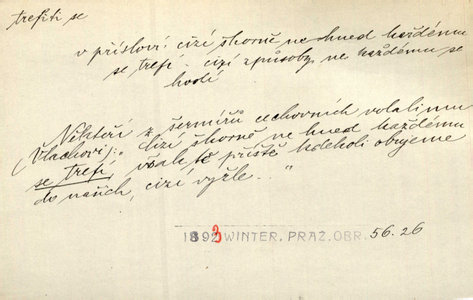 trefiti se
v přísloví: cizí škorně ne hned každému
se trefí - cizí způsoby ne každému se
hodí
Někteří z šermířů cechovních volali mu
(Vlachovi): "Cizí škorně ne hned každému
se trefí, však tě příště kdekoli obujeme
do našich, cizí vyžle..."
1893 WINTER. PRAŽ. OBR. 56.26